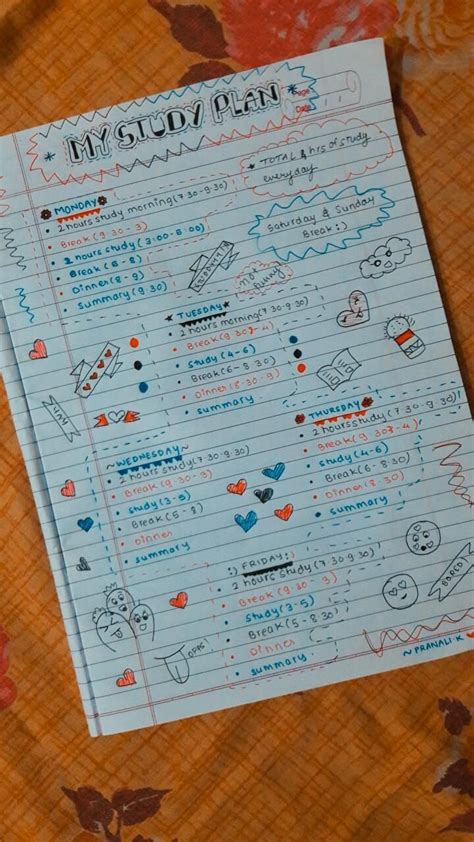 MY STUDY PLAN
Page
Date
* TOTAL 4 hrs of study
everyday
MONDAY
• 2 hours study morning (7:30-9:30)
• Break (9:30-3)
• 2 hours study (3:00-5:00)
• Break (5-8)
• Dinner (8-9)
• summary (9:30)
Saturday & Sunday
Break :)
TUESDAY
• 2 hours morning (7:30-9:30)
• Break (9:30?-4)
• study (4-6)
• Break (6-8:30)
• Dinner (8:30-9)
• summary
YAY
THURSDAY
• 2 hours study (7:30-9:30)
• Break (9:30?-4)
• study (4-6)
• Break (6-8:30)
• Dinner (8:30)
• summary
~WEDNESDAY~
• 2 hours study (7:30-9:30)
• Break (9:30-3)
• study (3-5)
• Break (5-8)
• Dinner
• summary
:) FRIDAY :)
• 2 hours study (7:30-9:30)
• Break (9:30-9)
• study (3-5)
• Break (5-8:30)
• Dinner
• summary
BORED
OOPS!
~PRANALI.K